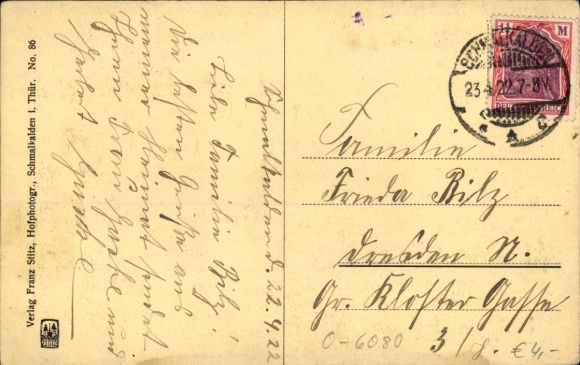 Verlag Franz Stitz, Hofphotogr., Schmalkalden i. Thür. No. 86
Schmalkalden d. 22.4.22
Liebe Familie Bilz!
Die besten Grüße aus
meiner Heimat sendet
Ihnen Frau Gusche und
Herbert Gusche
SCHMALKALDEN
23.4.22.7-8V.
M
DEUTSCHES REICH
Familie
Frieda Bilz
Dresden N.
Gr. Kloster Gasse
3
O-6080
€ 4,-